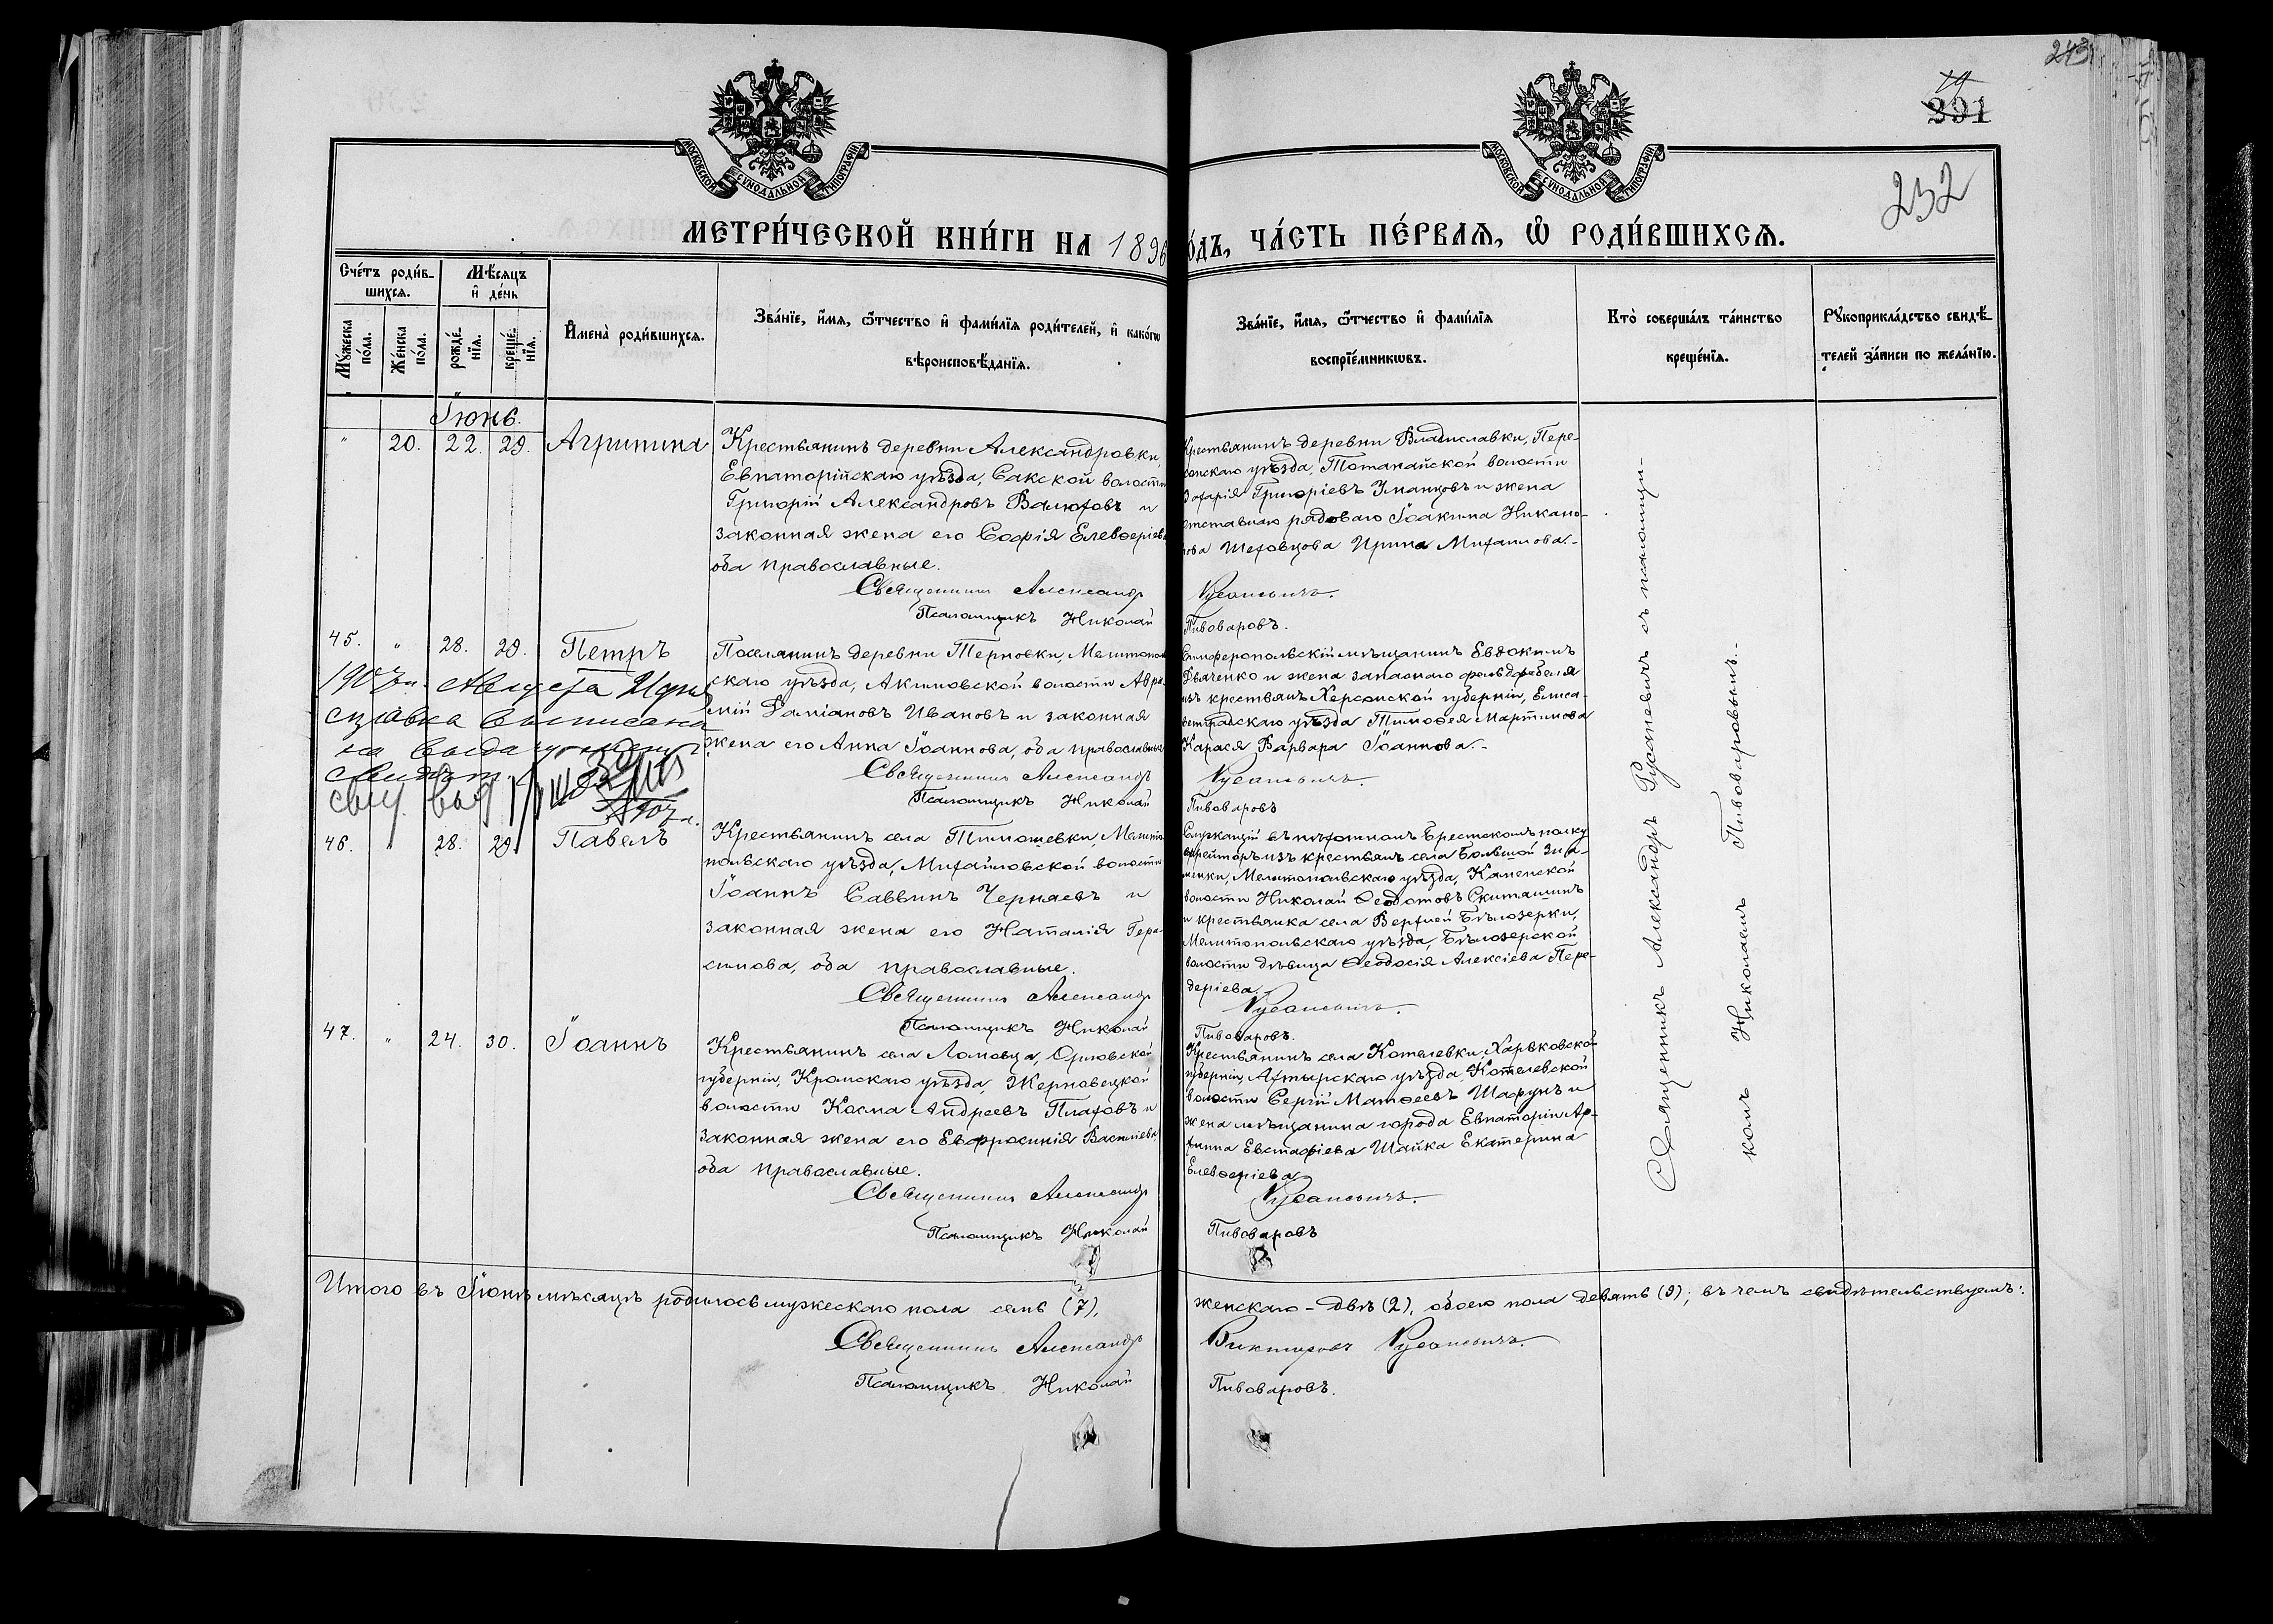 243
19
391
232
МОСКОВСКОЙ СѴНОДАЛЬНОЙ ТИПОГРАФІИ
МОСКОВСКОЙ СѴНОДАЛЬНОЙ ТИПОГРАФІИ
МЕТРИ́ЧЕСКОЙ КНИ́ГИ НА 1896
О́ДЪ, ЧА́СТЬ ПЕ́РВАЯ, Ѿ РОДИ́ВШИХСЯ.
Сче́тъ роди́в-
шихся.
Мѣ́сяцъ
и҆ де́нь
Мꙋ́жеска по́ла.
Же́нска по́ла.
рожде́-нїя.
креще́-нїя.
И҆мена̀ роди́вшихся.
Зва́нїе, и҆́мя, ѻ҆́тчество и҆ фами́лїя роди́телей, и҆ како́гѡ
вѣроисповѣ́данїя.
Зва́нїе, и҆́мя, ѻ҆́тчество и҆ фами́лїя
воспрїе́мникѡвъ.
Кто̀ соверша́лъ та́инство
креще́нїя.
Рꙋкоприкла́дство свидѣ́-
телей за́писи по жела́нїю.
Іюнь.
" 20. 22. 29. Агрипина
Крестьянинъ деревни Александровки,
Евпаторійскаго уѣзда, Сакской волости
Григорій Александровъ Валюховъ и
законная жена его Софія Елевѳеріева
оба православные.
Священникъ Александр
Псаломщикъ Николай
Крестьянинъ деревни Владиславки, Пере-
копскаго уѣзда, Тотанайской волости
Захарія Григоріевъ Уманцовъ и жена
отставнаго рядоваго Іоакима Никано-
рова Шеховцова Ирина Михаилова.-
Русаневичъ.
Пивоваровъ.
45. " 28. 29. Петръ
Поселянинъ деревни Терновки, Мелитополь
скаго уѣзда, Акимовской волости Авра
мій Даміановъ Ивановъ и законная
жена его Анна Іоаннова, оба православные
Священникъ Александръ
Псаломщикъ Николай
Симферопольскій мѣщанинъ Евдокимъ
Дьяченко и жена запаснаго фельдфебеля
изъ крестьянъ Херсонской губерніи, Елиса-
ветградскаго уѣзда Тимоѳея Мартинова
Карася Варвара Іоаннова.-
Русаневичъ
Пивоваровъ
1907 г. Августа
справка выписана
на выдачу
46. " 28. 29. Павелъ
Крестьянинъ села Тимошевки, Мелито
польскаго уѣзда, Михайловской волости
Іоаннъ Саввинъ Черняевъ и
законная жена его Наталія Гера
симова, оба православные.
Священникъ Александр
Псаломщикъ Николай
Служащій въ пѣхотномъ Брестскомъ полку
ефрейторъ изъ крестьянъ села Большой Зна-
менки, Мелитопольскаго уѣзда, Каменской
волости Николай Ѳеодотовъ Скиташинъ
и крестьянка села Верхней Бѣлозерки,
Мелитопольскаго уѣзда, Бѣлозерской
волости дѣвица Ѳеодосія Алексіева Пере-
деріева.
Русаневичъ.
Пивоваровъ.
47. " 24. 30. Іоаннъ
Крестьянинъ села Ломовца, Орловской
губерніи, Кромскаго уѣзда, Жерновецкой
волости Косма Андреевъ Плаховъ и
законная жена его Евфросинія Василіева
оба православные.
Священникъ Александр
Псаломщикъ Николай
Крестьянинъ села Котелевки, Харьковской
губерніи, Ахтырскаго уѣзда, Котелевской
волости Сергій Матѳеевъ Шарунъ и
жена мѣщанина города Евпаторіи Ар-
хиппа Евстафіева Шайка Екатерина
Елевѳеріева
Русаневичъ.
Пивоваровъ
Священникъ Александръ Русаневичъ съ псаломщи-
комъ Николаемъ Пивоваровымъ.-
Итого въ Іюнѣ мѣсяцѣ родилось мужескаго пола семь (7),
женскаго - двѣ (2), обоего пола девять (9); въ чемъ свидѣтельствуемъ:
Священникъ Александръ
Викторовъ Русаневичъ.
Псаломщикъ Николай
Пивоваровъ.